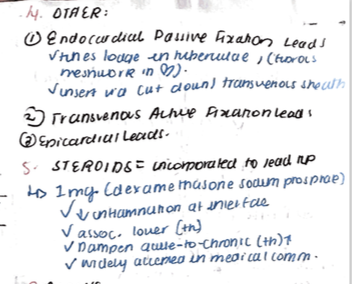 4. OTHER:
① Endocardial Passive Fixation Leads
√tines lodge in tuberculae, (fibrous
meshwork in ♡).
√insert via (cut down) transvenous sheath
② Transvenous Active Fixation Leads
③ Epicardial Leads.
5. STEROIDS = incorporated to lead tip
↳ 1mg. (dexamethasone sodium phosphate)
√ ↓ inflammation at interface
√ assoc. lower (th)
√ Dampen acute-to-chronic (th)↑
√ widely accepted in medical comm.